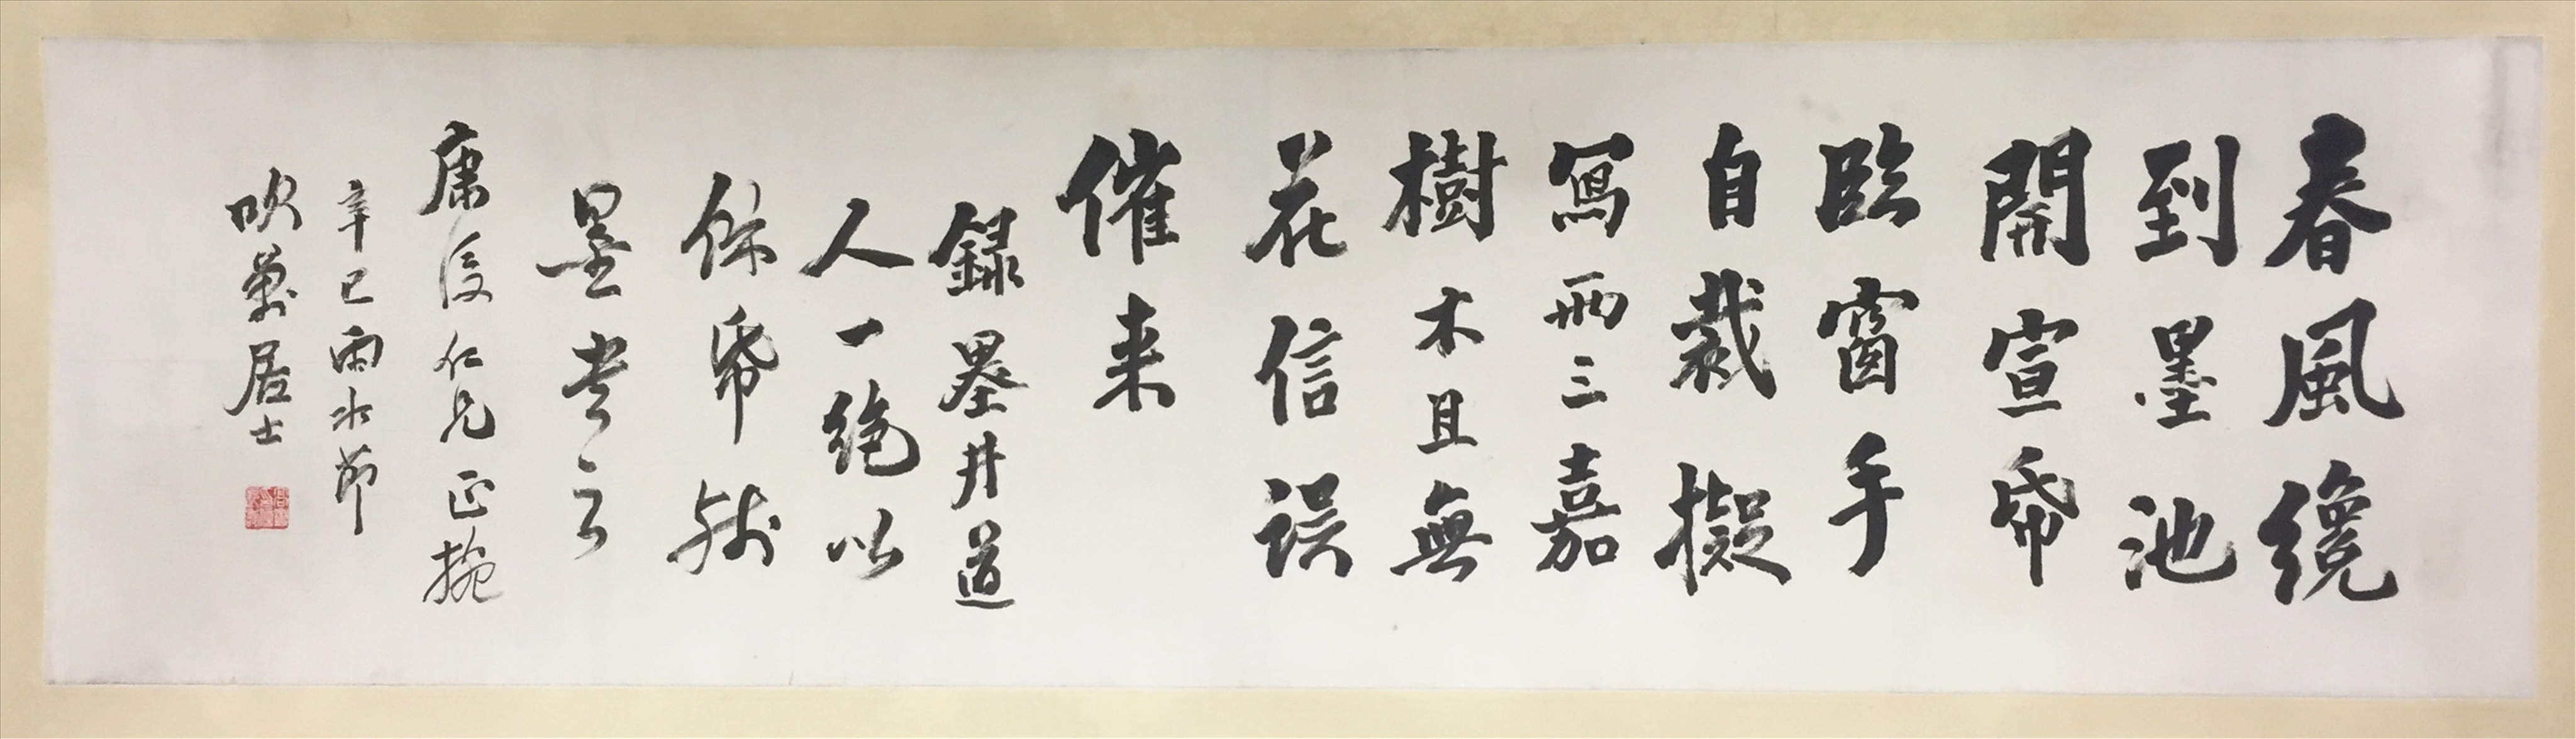 春風纔
到墨池
開宣帋
臨窗手
自裁擬
寫兩三嘉
樹木且無
花信误
催来
録墨井道
人一絶以
餘帋賸
墨书之
康侯仁兄正挽
辛巳雨水節
吹萬居士